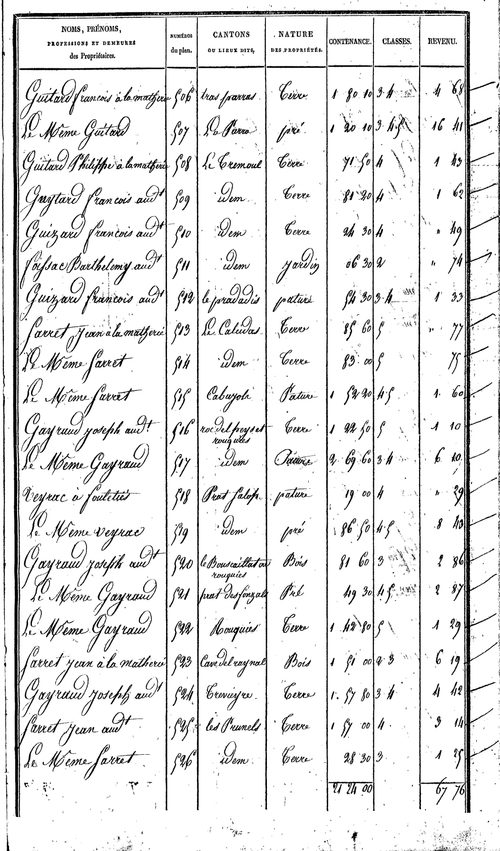 NOMS, PRÉNOMS, PROFESSIONS ET DEMEURES des Propriétaires. NUMÉROS du plan. CANTONS OU LIEUX DITS. NATURE DES PROPRIÉTÉS. CONTENANCE. CLASSES. REVENU.
Guitard francois à la matherie 506 tras parras Terre 1 80 10 3 4 4 68
Le Même Guitard 507 La Parro pré 1 20 10 3 4 5 16 41
Guitard Philippe à la matherie 508 Le Tremoul Terre 71 50 4 1 43
Guytard francois audt 509 idem Terre 81 20 4 1 62
Guizard francois audt 510 idem Terre 24 30 4 " 49
foissac Barthelemy audt 511 idem jardin 06 30 2 " 74
Guizard francois audt 512 le pradadis pature 54 30 3 4 1 33
Sarret jean à la matherie 513 Le Caludas Terre 85 60 5 " 77
Le Même Sarret 514 idem Terre 83 00 5 75
Le Même Sarret 515 Cabuyols Pature 1 52 20 4 5 1 60
Gayraud joseph audt 516 roc del freysset Terre 1 22 50 5 1 10
rouquies
Le Même Gayraud 517 idem Pature 2 69 60 3 4 6 10
Veyrac à 518 Prat pature 19 00 4 " 29
Le Même Veyrac 519 idem pré 86 50 4 5 8 43
Gayraud joseph audt 520 le Bois 81 60 3 2 86
rouquies
Le Même Gayraud 521 prat des Pré 49 30 4 5 2 87
Le Même Gayraud 522 Rouquies Terre 1 42 80 5 1 29
Sarret jean à la matherie 523 Cave del raynal Bois 1 51 00 2 3 6 19
Gayraud joseph audt 524 Terre 1 57 80 3 4 4 42
Sarret jean audt 525 les Prunels Terre 1 57 00 4 3 14
Le Même Sarret 526 idem Terre 28 30 3 1 25
21 24 00 67 76